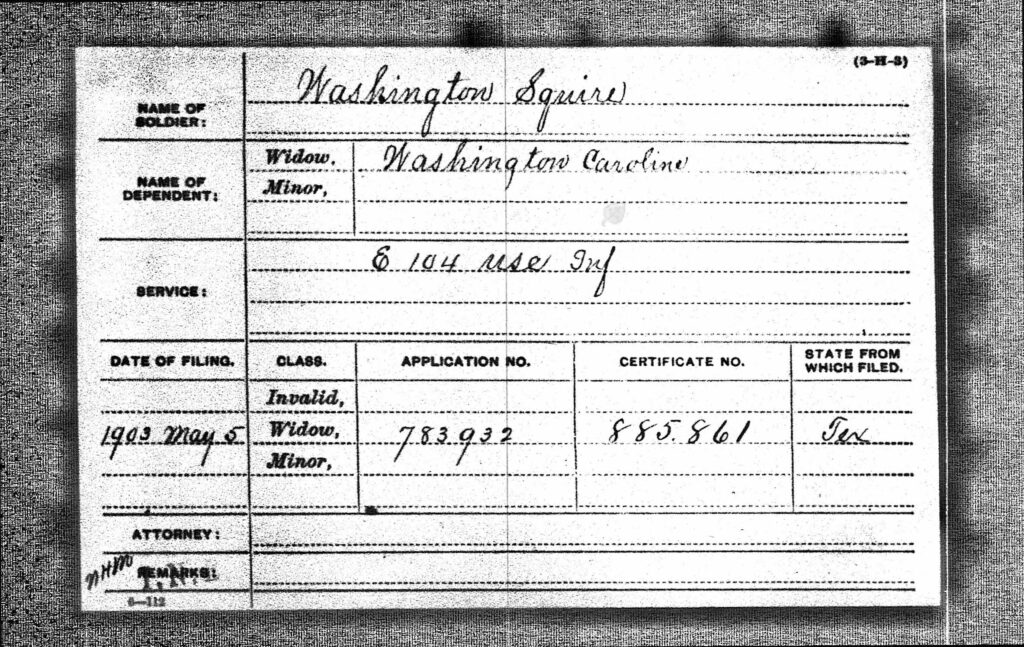 (3-H-3)
NAME OF SOLDIER: Washington Squire
NAME OF DEPENDENT:
Widow. Washington Caroline
Minor,
SERVICE: E 104 USC Inf
DATE OF FILING. CLASS. APPLICATION NO. CERTIFICATE NO. STATE FROM WHICH FILED.
Invalid,
1903 May 5 Widow, 783.932 885.861 Tex
Minor,
ATTORNEY:
NHM REMARKS: